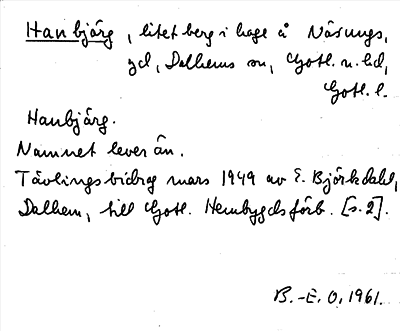 Hanbjärg, litet berg i hage å Näsungs,
gd, Dalhems sn, Gotl. n. hd,
Gotl. l.
Hanbjärg.
Namnet lever än.
Tävlingsbidrag mars 1949 av E. Björkdahl,
Dalhem, till Gotl. Hembygdsförb. [s. 2].
B.-E. O, 1961.